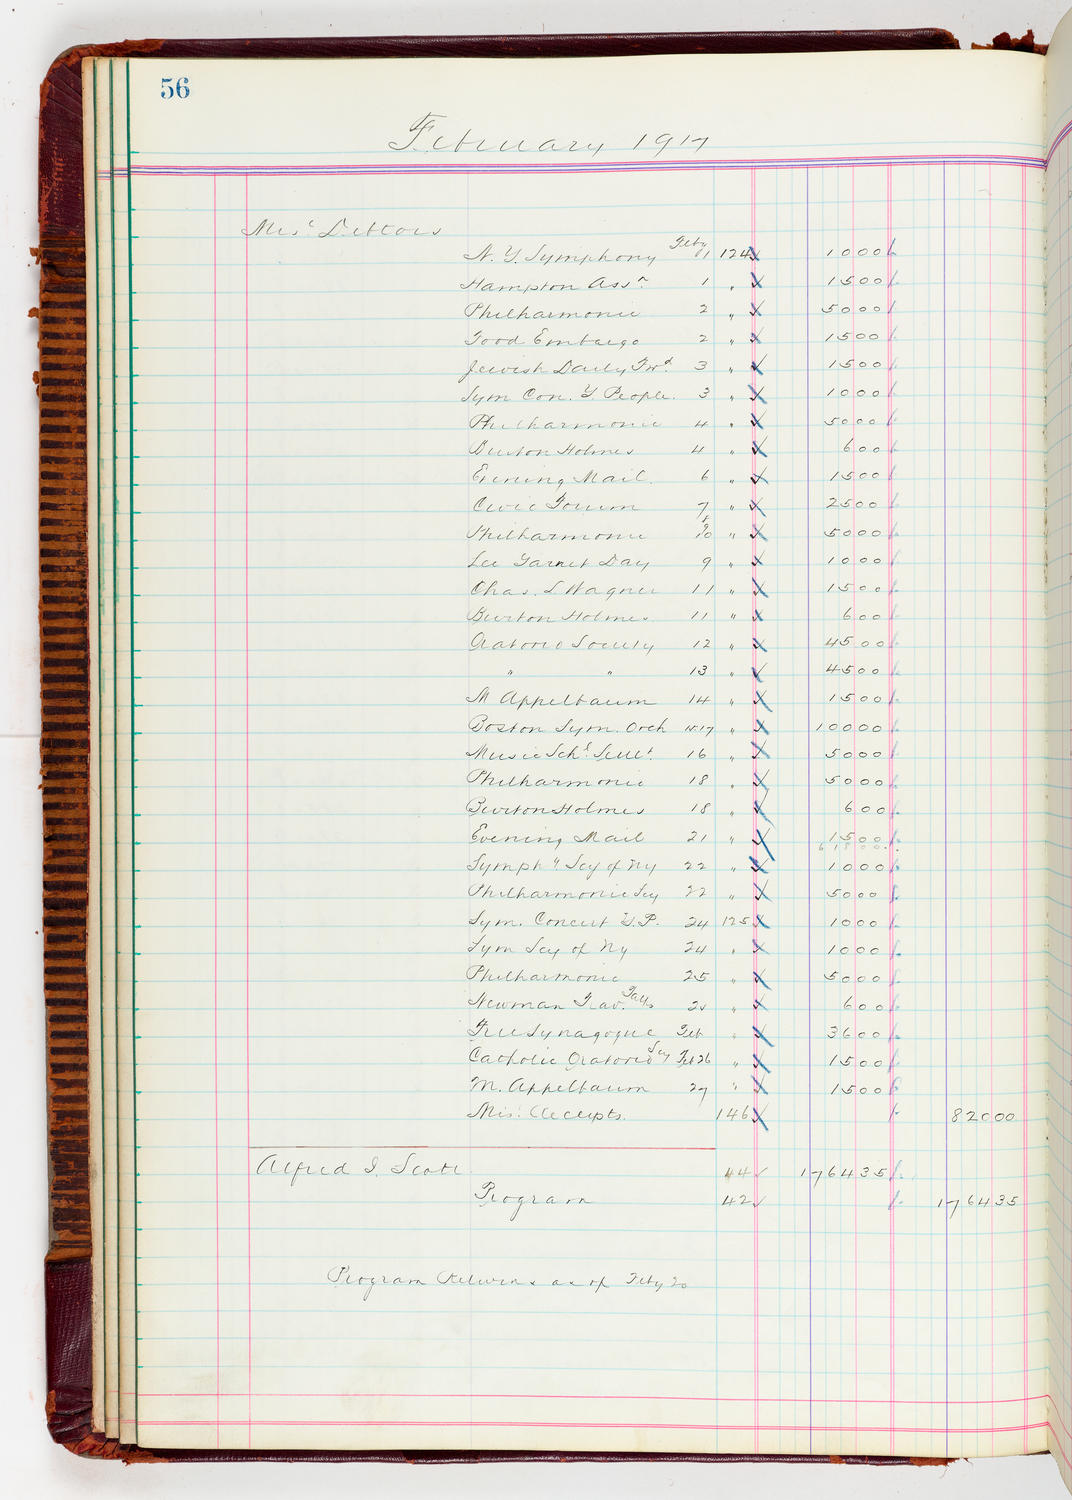 56
February 1917
Misc Debtors
N.Y. Symphony Feby 1 124 1000
Hampton Assn 1 " 1500
Philharmonic 2 " 5000
Food Embargo 2 " 1500
Jewish Daily Fwd 3 " 1500
Sym Con. Y People. 3 " 1000
Philharmonic 4 " 5000
Burton Holmes 4 " 600
Evening Mail. 6 " 1500
Civic Forum 7 " 2500
Philharmonic 8 9 10 " 5000
Lee Garnet Day 9 " 1000
Chas. L Wagner 11 " 1500
Burton Holmes 11 " 600
Oratorio Society 12 " 4500
" " 13 " 4500
M Appelbaum 14 " 1500
Boston Sym. Orch 15 17 " 10000
Music Schl Settlt. 16 " 5000
Philharmonic 18 " 5000
Burton Holmes 18 " 600
Evening Mail 21 " 1500
61800
Symphy Scy of Ny 22 " 1000
Philharmonic Scy 22 " 5000
Sym. Concert Y.P. 24 125 1000
Sym Scy of Ny 24 " 1000
Philharmonic 25 " 5000
Newman Trav. Talks 25 " 600
Free Synagogue Feb " 3600
Catholic Oratorio Scy Feb 26 " 1500
M. Appelbaum 27 " 1500
Misc Receipts. 146 82000
Alfred I. Scott 44 176435
Program 42 176435
Program Returns as of Feby 20